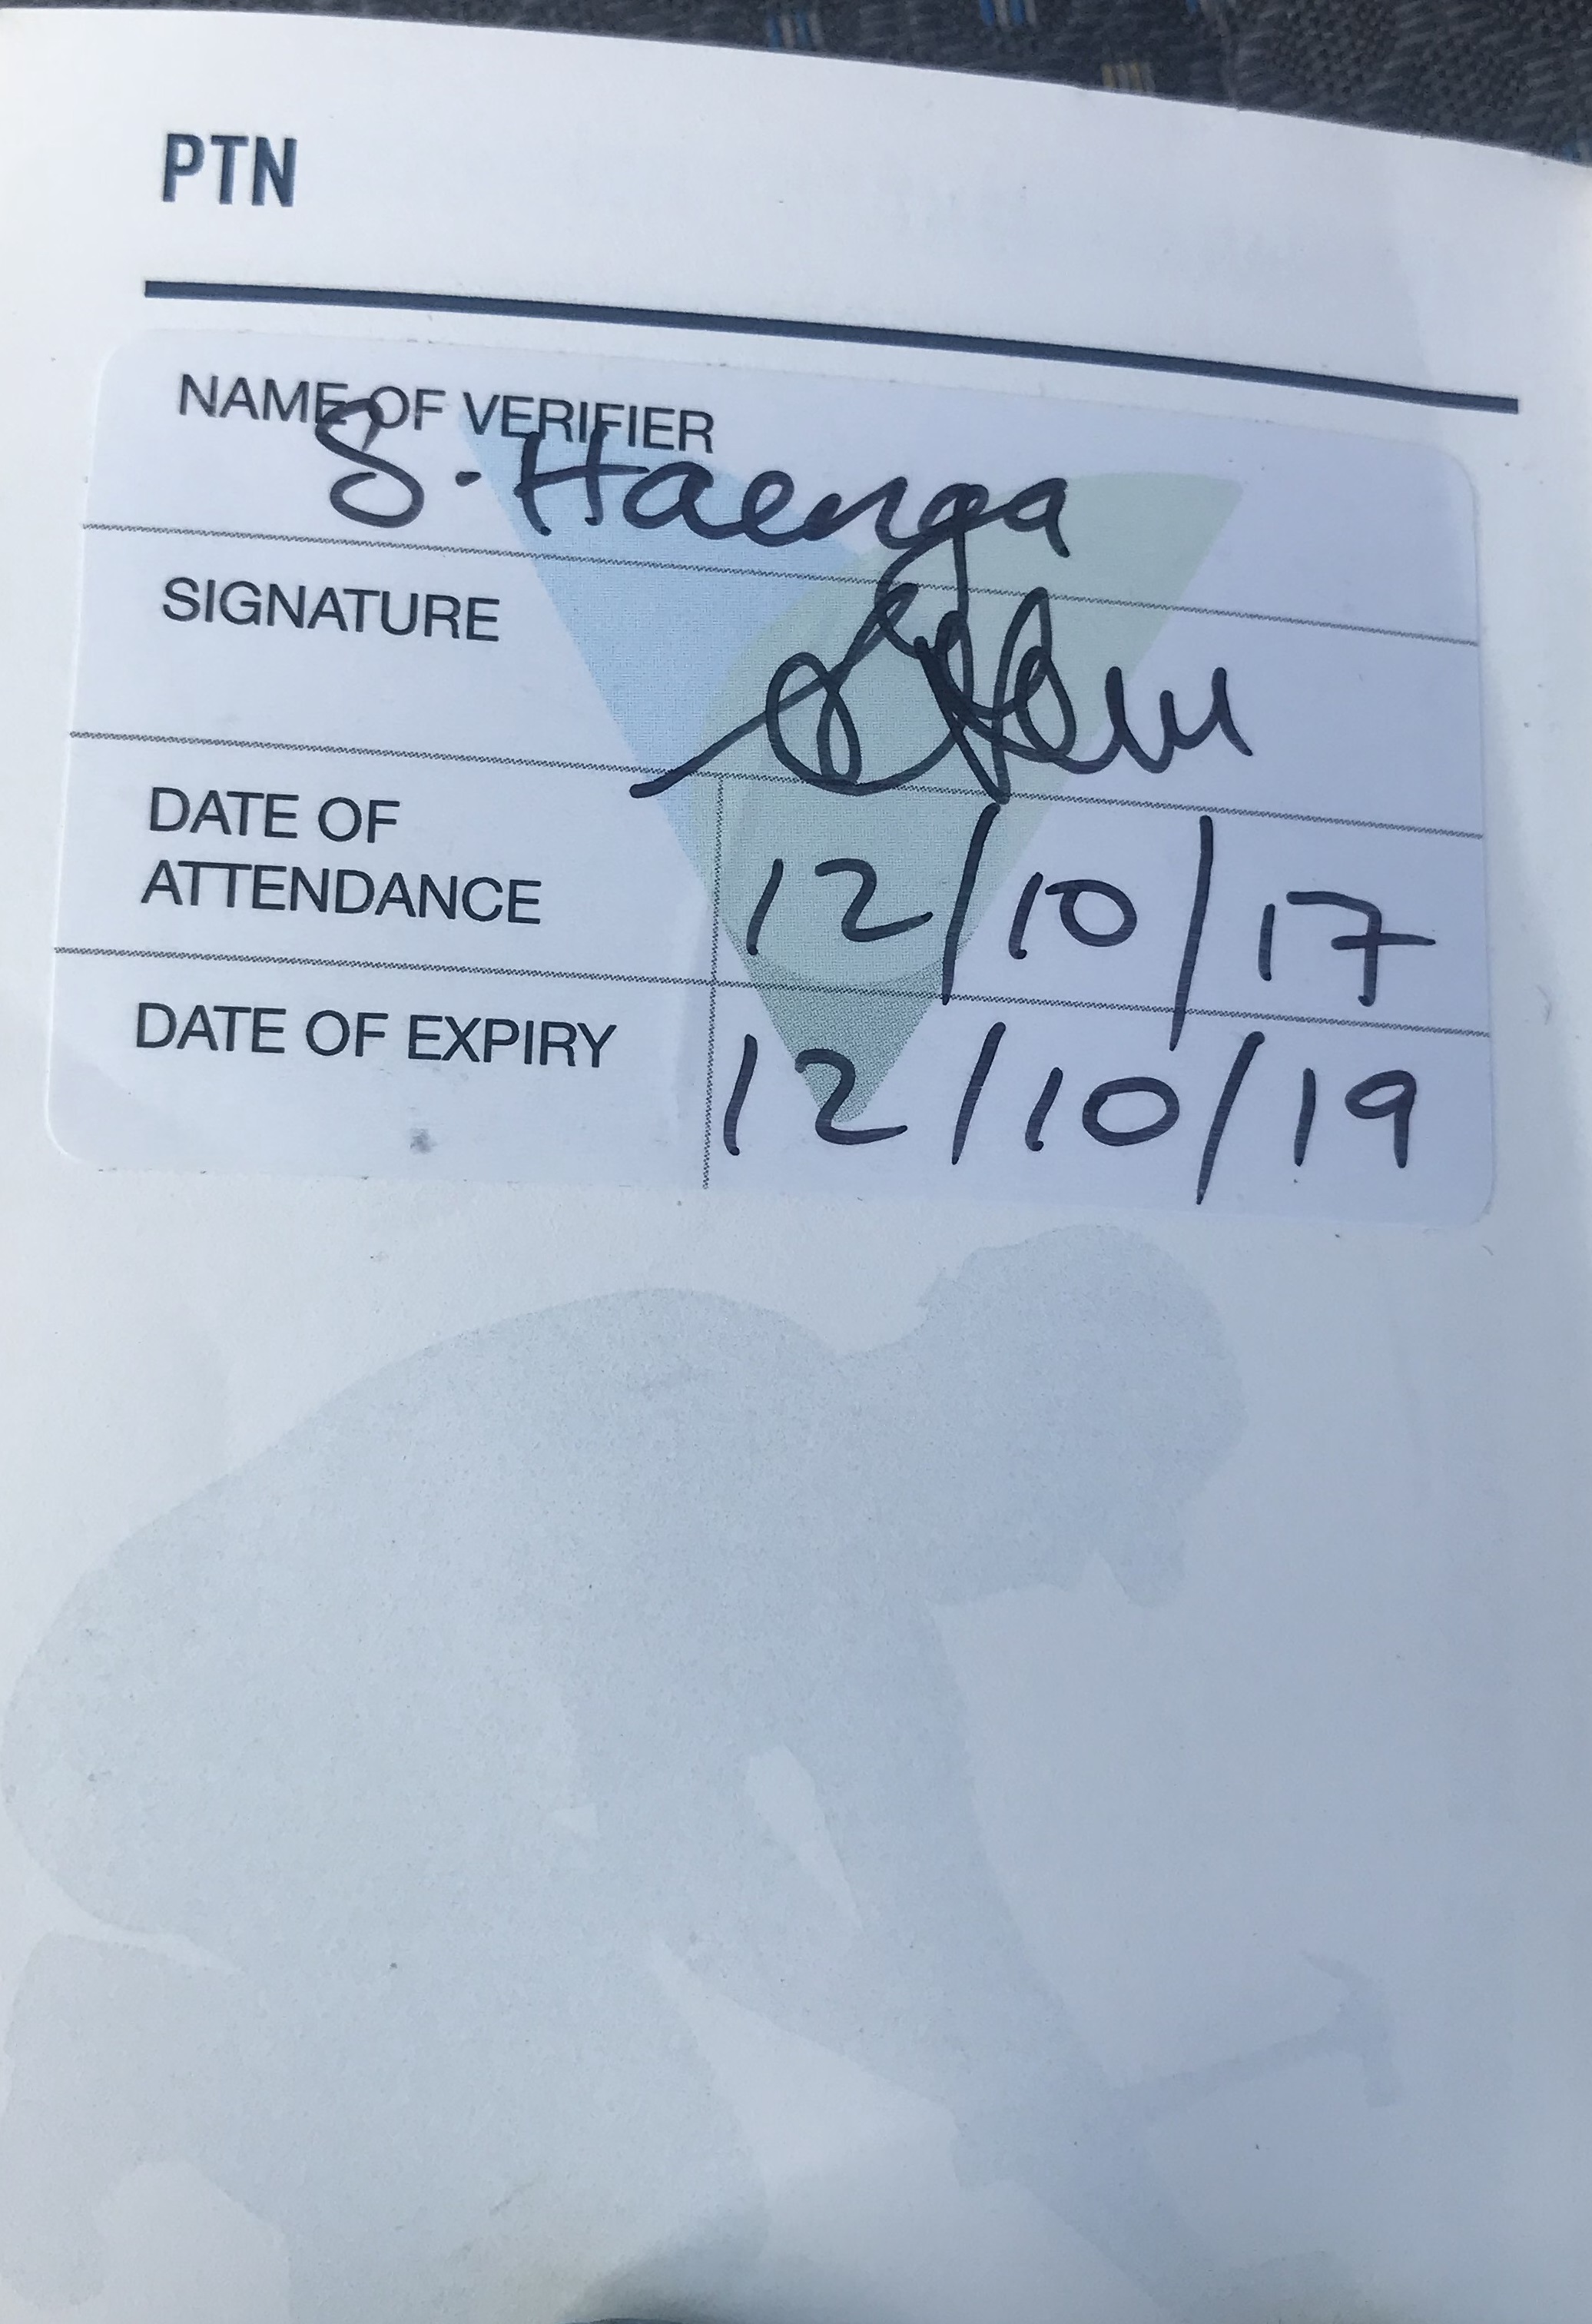 PTN
NAME OF VERIFIER
S. Haenga
SIGNATURE
DATE OF
ATTENDANCE
12/10/17
DATE OF EXPIRY
12/10/19